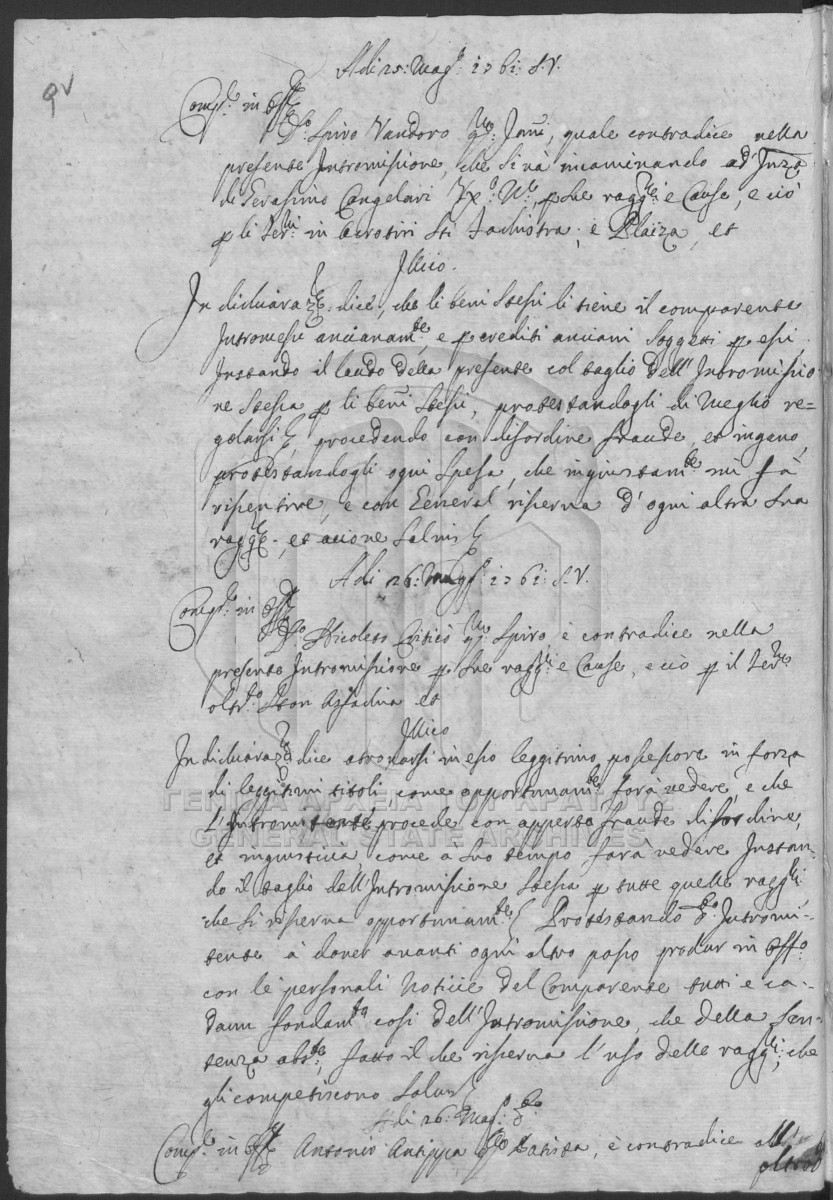 9v
Adi 25: Magº 1761: S.V.
Compe in Offº
Spiro Vandoro qm Janni, quale contradice nella
presente Intromissione, che si và incaminando ad Inza
di Gerasimo Cangelari per sue ragge è Cause, e ciò
p li Terni in Acrotiri Sti è Plaiza, et
Illico.
In dichiarazne dice, che li beni stessi li tiene il comparente
Intromessi ancianamte, e p crediti anciani soggetti p essi
Instando il laudo della presente col taglio dell'Intromissio-
ne stessa p li beni stessi, protestandogli di meglio re=
golarsi, procedendo con disordine fraude, et ingano,
protestandogli ogni spesa, che ingiustamte mi fà
risentire, e con General riserva d'ogni altra sua
ragge, et azione Salvis
Adi 26: Maggº 1761: S.V.
Compe in Offº
Nicoleto qm Spiro è contradice nella
presente Intromissione p sue raggni e Cause, e ciò p il Terno
oltrto et
Illico
In dichiarazne dice atrovarsi in esso leggitimo possessore in forza
di leggitimi titoli come opportunamte farà vedere, e che
l'Intromitente procede con apperta fraude disordine,
et ingiusticia come a suo tempo farà vedere Instan-
do il taglio dell'Intromissione stessa p tutte quelle raggni
che si riserva opportunamte Protestando dto Intromi-
tente à dover avanti ogni altro passo produr in Offo
con le personali Noticie del Comparente tutti e ca-
daun fondamto così dell'Intromissione, che della Sen-
tenza abste, fatto il che riserva l'uso delle raggni, che
gli competiscono Salvis
Adi 26: Magº: do
Compe in Offº Antonio Antippa qm Batista, è contradice all
oltrod
ΓΕΝΙΚΑ ΑΡΧΕΙΑ ΤΟΥ ΚΡΑΤΟΥΣ
GENERAL STATE ARCHIVES